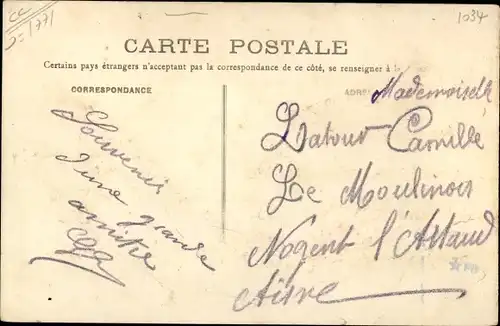 1034
CARTE POSTALE
Certains pays étrangers n'acceptant pas la correspondance de ce côté, se renseigner à
CORRESPONDANCE
Mademoiselle
Latour Camille
Le Moulinois
Nogent l'Artaud
Aisne
Souvenir
d'une grande
amitié